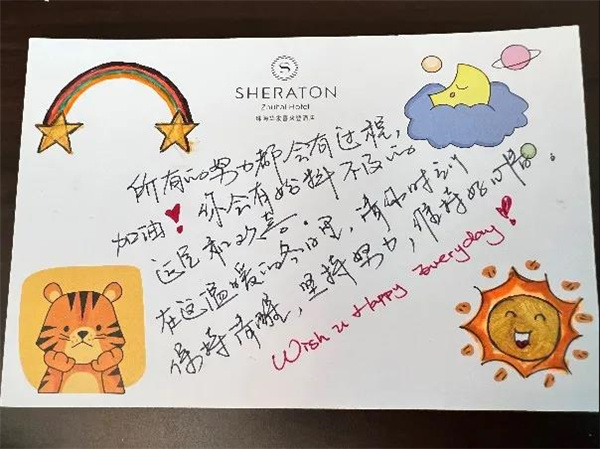 SHERATON
Zhuhai Hotel
珠海华发喜来登酒店
所有的努力都会有过程，
加油！你会有始料不及的
运气和欢喜。
在这温暖的冬日里，请你时刻
保持清醒，坚持努力，维持好心情。
Wish u Happy Everyday！